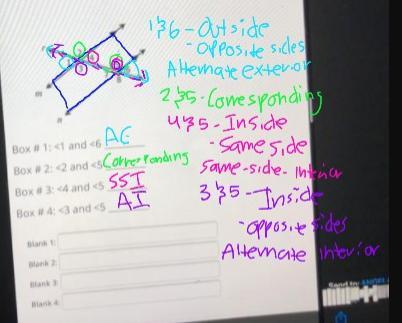 1&6 - Outside
- Opposite sides
Alternate exterior
2&5 - Corresponding
4&5 - Inside
- Same side
Same-side-Interior
3&5 - Inside
- opposite sides
Alternate interior
Box # 1: <1 and <6 AE
Box # 2: <2 and <5 Corresponding
Box # 3: <4 and <5 SSI
Box # 4: <3 and <5 AI
Blank 1:
Blank 2:
Blank 3:
Blank 4:
Send to